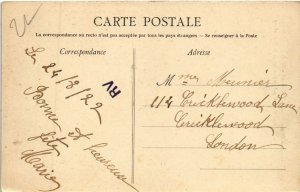 CARTE POSTALE
La correspondance au recto n'est pas acceptée par tous les pays étrangers. — Se renseigner à la Poste
Correspondance
Adresse
Le 24/8/22
Bonne et heureuse
fête
Marie
RV
Mme Meunier
114 Cricklewood Lane
Cricklewood
London